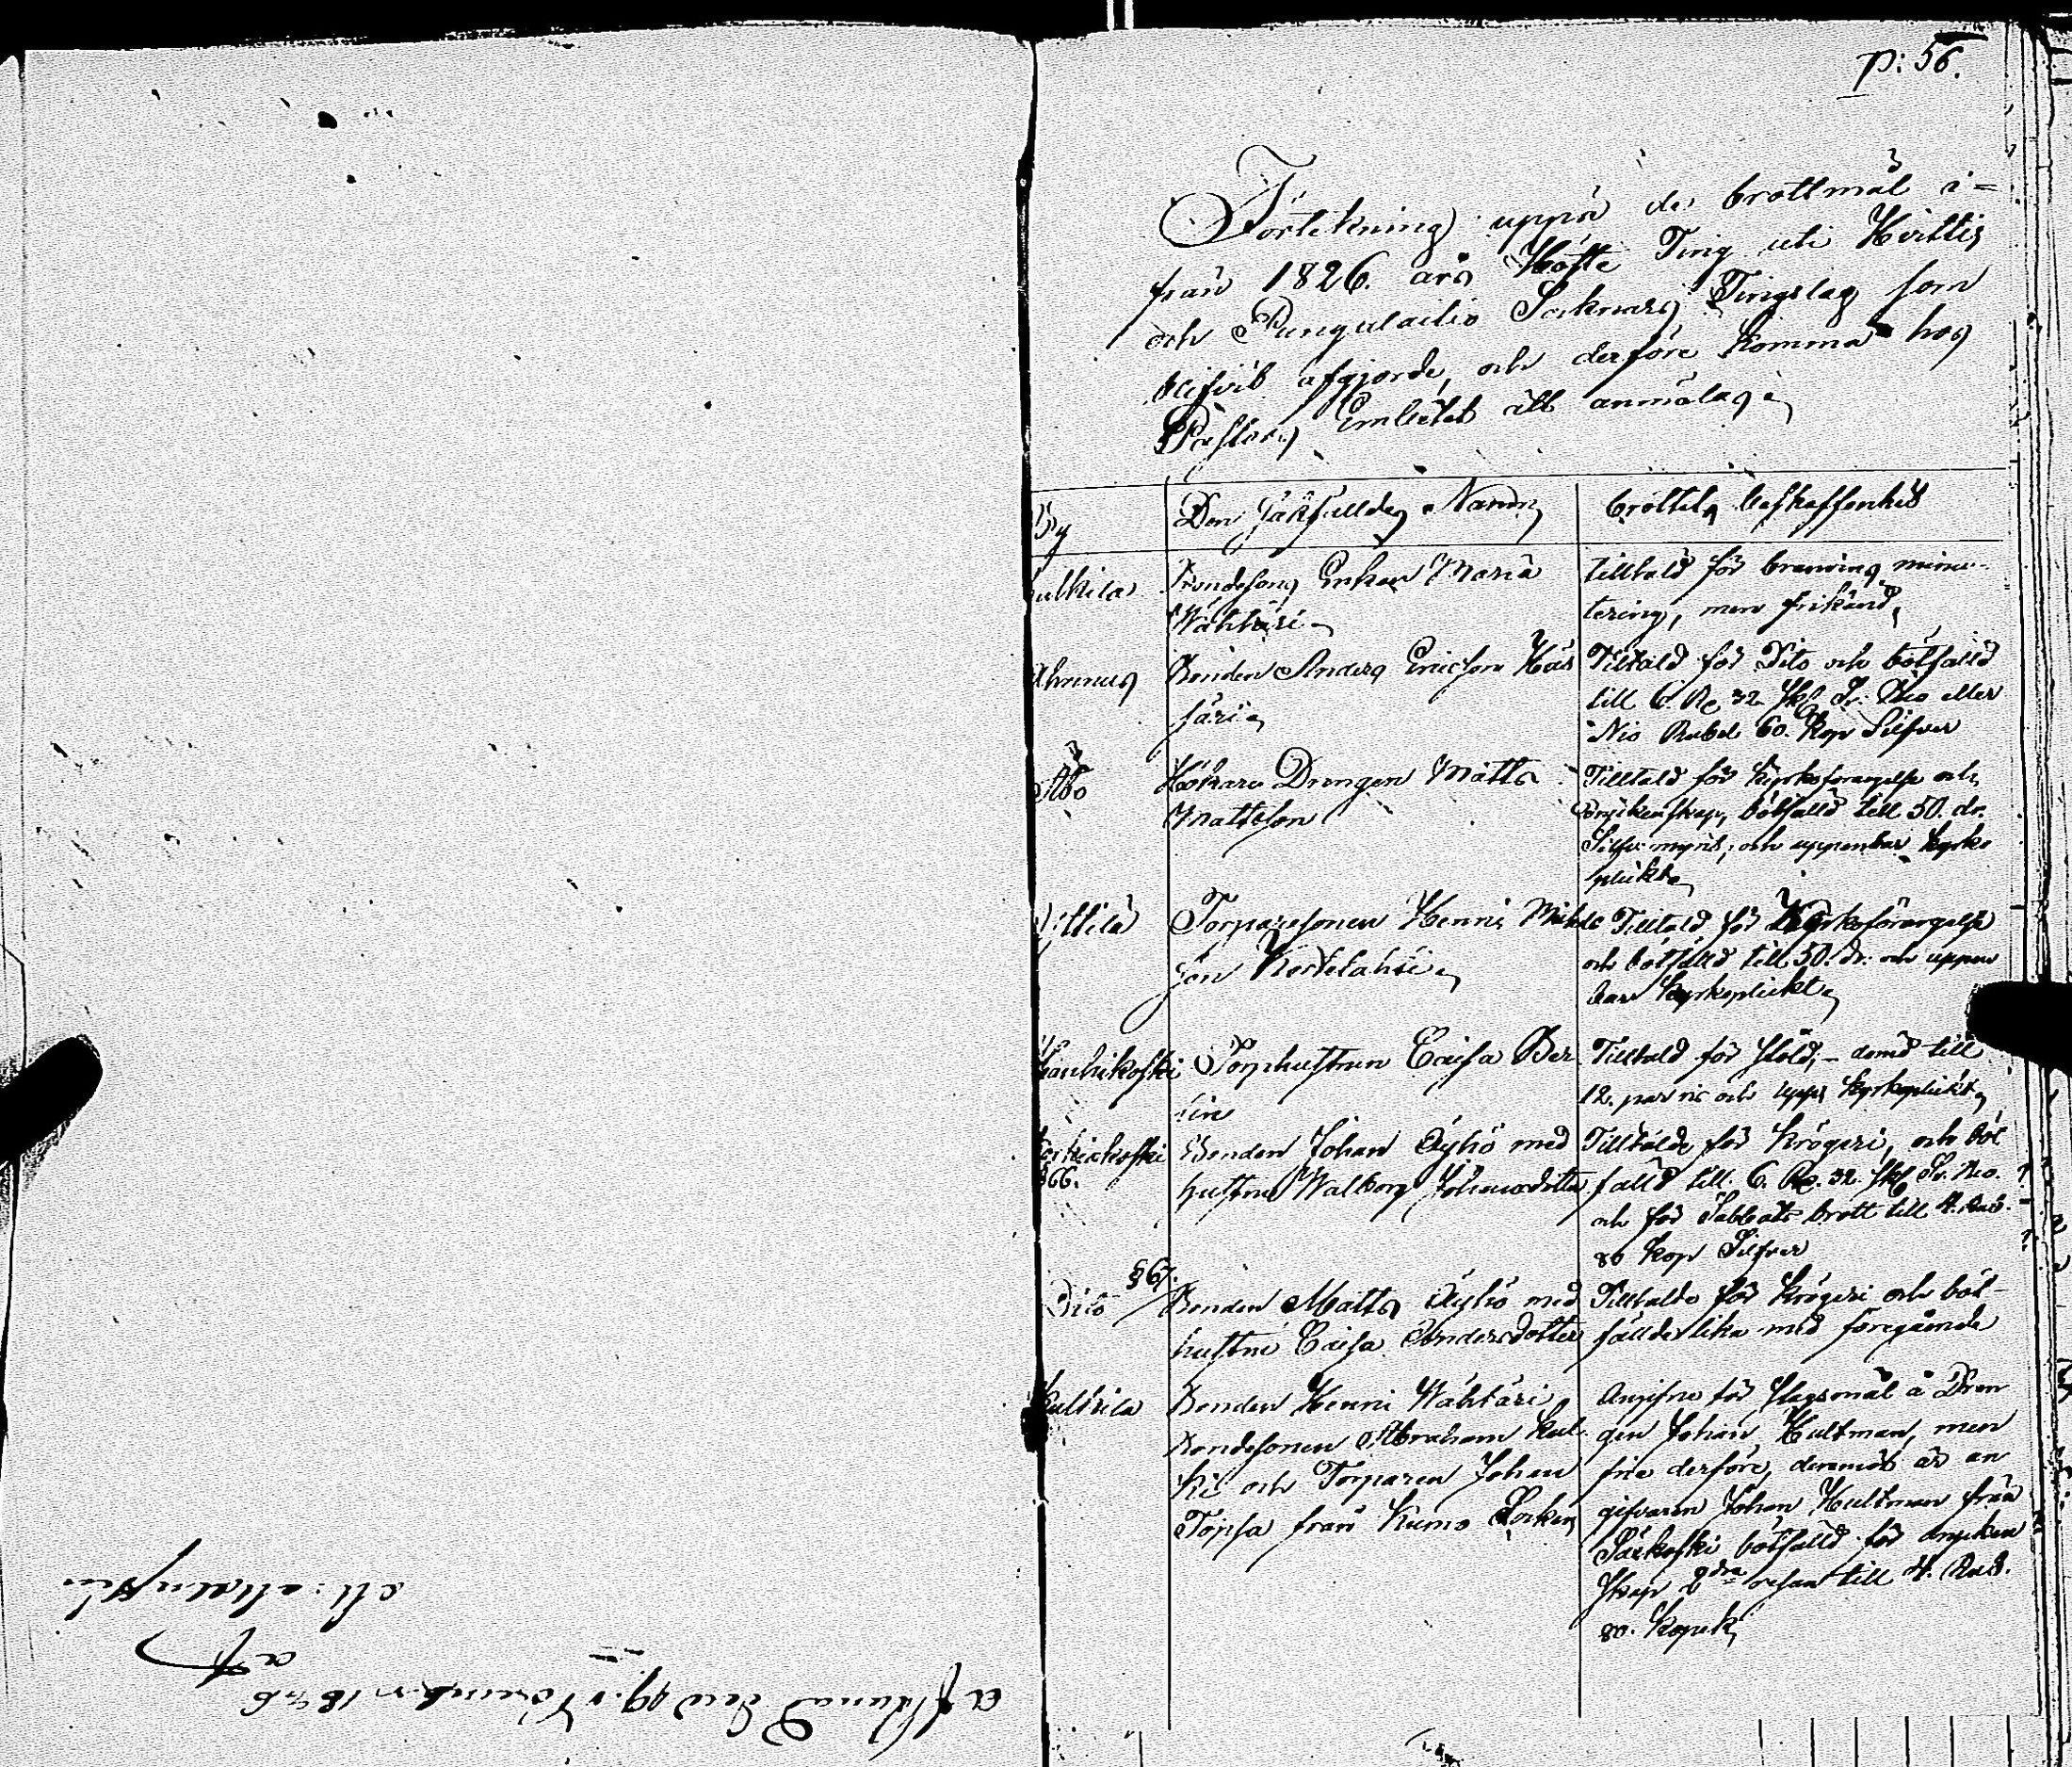 p: 56.
Förtekning uppå de brottmål i=
från 1826. års Höste Ting uti Hvittis
och Pungulaitio Soknars Tingslag som
blifvit afgjorde, och derföre komma hos
Pastors Embetet att anmälas
By
Den sakfälldes Namn
brottets beskaffenhet
Bondesons Enkan Maria
Wähtäri
tilltald för brännvins minu-
tering, men frikänd,
Bonden Anders Ericson Här
färi
Tilltald för Dito och bötfälld
till 6. R 32. sk. Sr. Rio eller
Nio Rubel 60. Kop Silfver
Åbo
Hökare Drengen Matts
Mattsson
Tilltald för kyrkoförargelse och
dryckenskap, bötfälld till 50. dr.
Silfr: mynt, och uppenbar kyrko
plikt
Torparesonen Henric Michels
son
Tilltald för Kyrkoförargelse
och bötfälld till 50. dr. och uppen
bar kyrkoplikt
Torphustrun Caisa Ber
Tilltald för stöld, – dömd till
12. par ris och upp: kyrkoplikt
§66.
Bonden Johan Äyhö med
hustru Walborg Johansdotter
Tilltalde för krögeri, och böt
fälld till 6. R. 32. sk. Sr. Rio.
och för Sabbats brott till 4. Rub.
80 kop Silfver
Dito §67.
Bonden Matts Äyhö med
hustru Caisa Andersdotter
Tilltalde för krögeri och böt-
fällde lika med föregående
Bonden Henric Wähtäri
Bondesonen Abraham Kul
ki och Torparen Johan
Töpsa från Kumo Socken
Angifne för slagsmål å Dren
gen Johan Hultman, men
frie derföre, deremot är an
gifvaren Johan Hultman från
Särkoski bötfälld för drycken
skap 2dra resan till 4. Rub.
80. Kopek
af